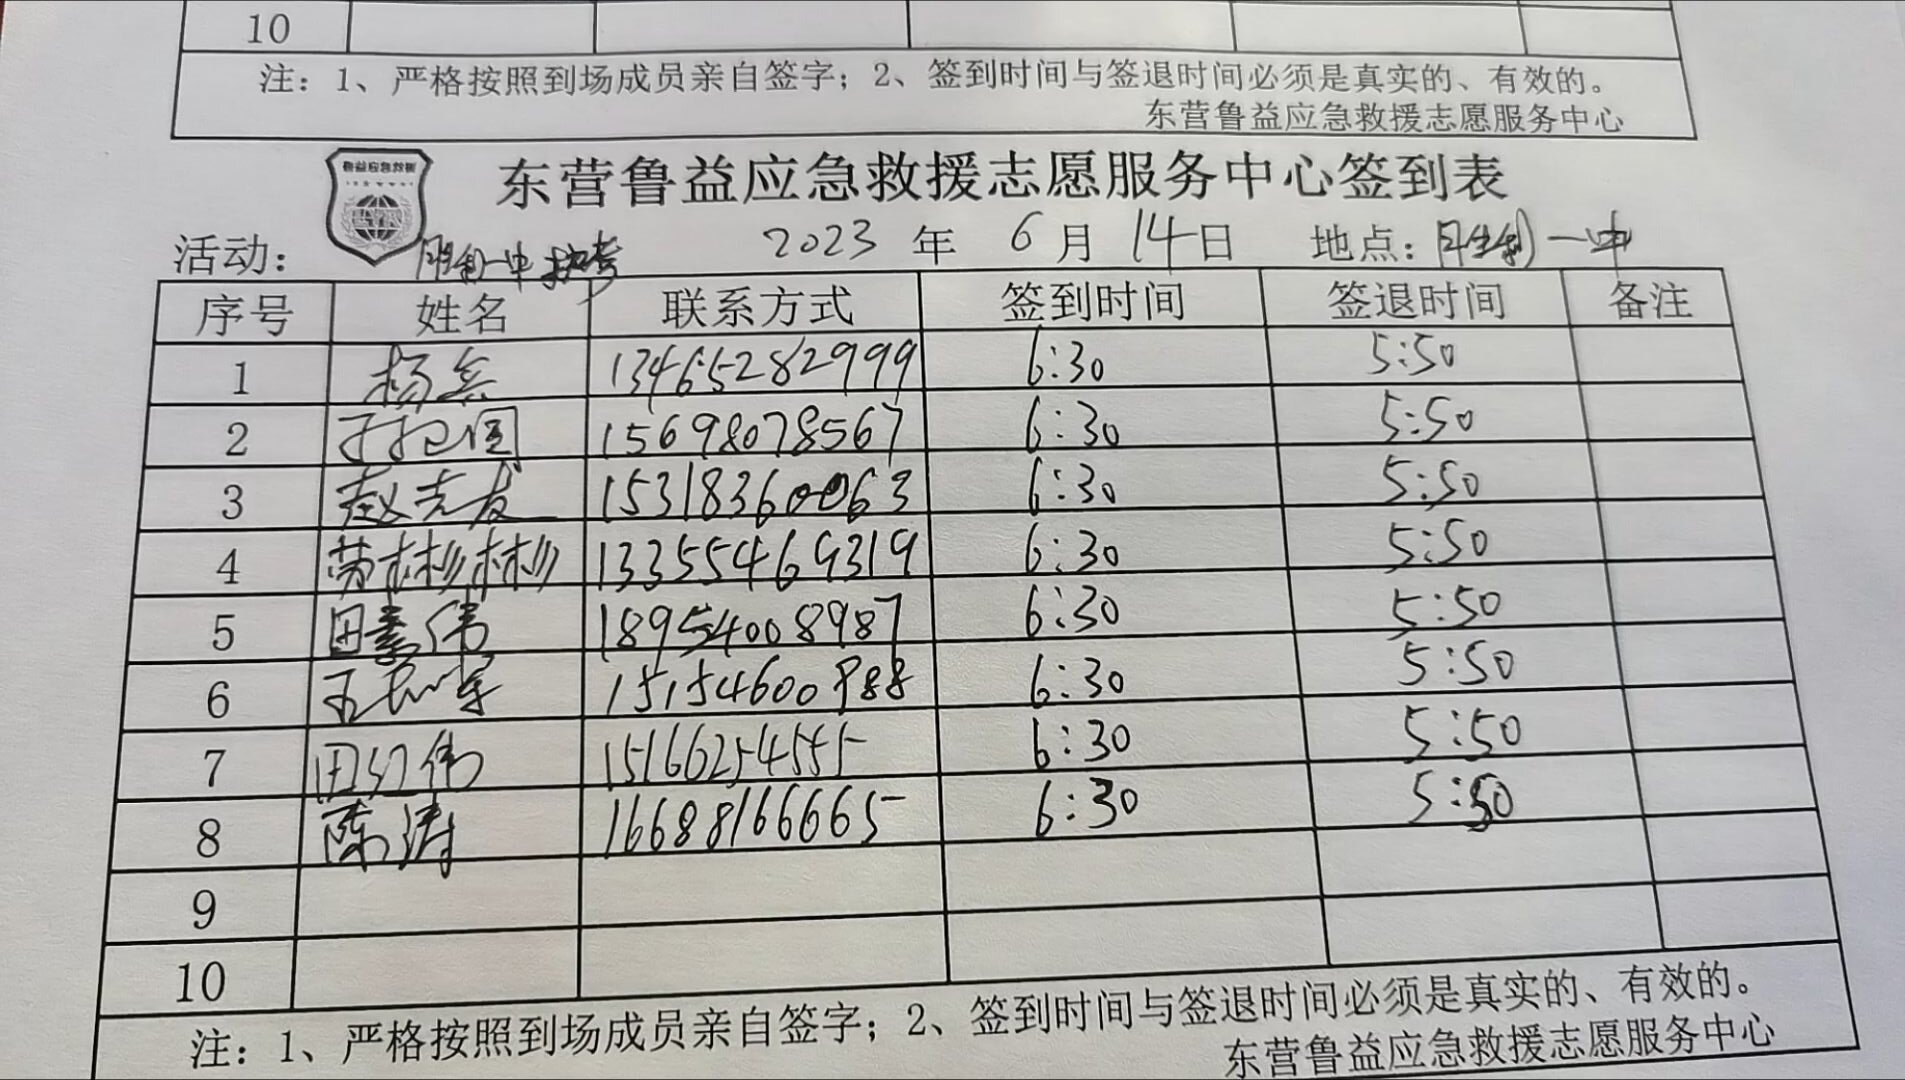 10
注：1、严格按照到场成员亲自签字；2、签到时间与签退时间必须是真实的、有效的。
东营鲁益应急救援志愿服务中心
鲁益应急救援
东营鲁益应急救援志愿服务中心签到表
活动：胜利一中护考 2023年6月14日 地点：胜利一中
序号 姓名 联系方式 签到时间 签退时间 备注
1 杨兵 13465282999 6:30 5:50
2 15698078567 6:30 5:50
3 赵志友 15318360063 6:30 5:50
4 劳彬彬 13355469319 6:30 5:50
5 田素伟 18954008987 6:30 5:50
6 15154600888 6:30 5:50
7 田红伟 15166254555 6:30 5:50
8 陈涛 16688166665 6:30 5:50
9
10
注：1、严格按照到场成员亲自签字；2、签到时间与签退时间必须是真实的、有效的。
东营鲁益应急救援志愿服务中心